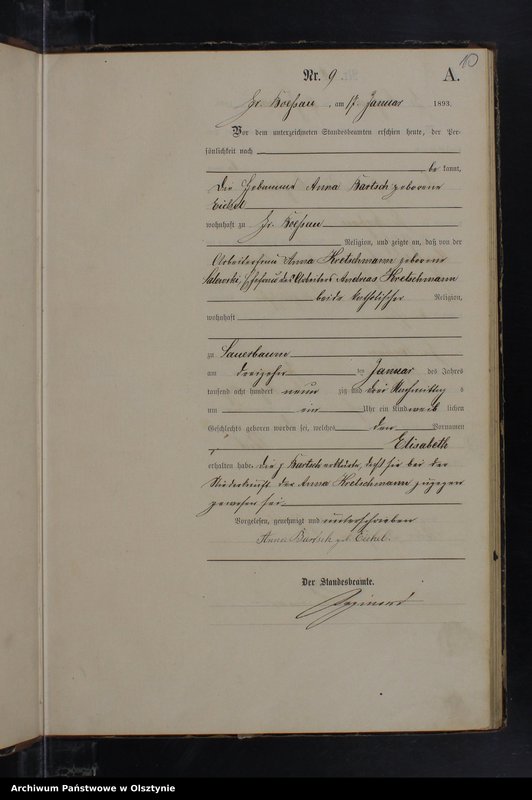 10
Nr. 9 A.
Gr. Koessau, am 17. Januar 1893.
Vor dem unterzeichneten Standesbeamten erschien heute, der Per-
sönlichkeit nach
be kannt,
die Hebamme Anna Bartsch geborene
Eichel
wohnhaft zu Gr. Koessau
Religion, und zeigte an, daß von der
Arbeiterfrau Anna Kretschmann geborene
Ehefrau des Arbeiters Andreas Kretschmann
beide katholischer Religion,
wohnhaft
zu Sauerbaum
am dreizehn ten Januar des Jahres
tausend acht hundert neun zig und drei Nachmittag s
um ein Uhr ein Kind weib lichen
Geschlechts geboren worden sei, welches den Vornamen
Elisabeth
erhalten habe. Die p. Bartsch erklärte, daß sie bei der
Niederkunft der Anna Kretschmann zugegen
gewesen sei.
Vorgelesen, genehmigt und unterschrieben
Anna Bartsch geb. Eichel.
Der Standesbeamte.
Archiwum Państwowe w Olsztynie